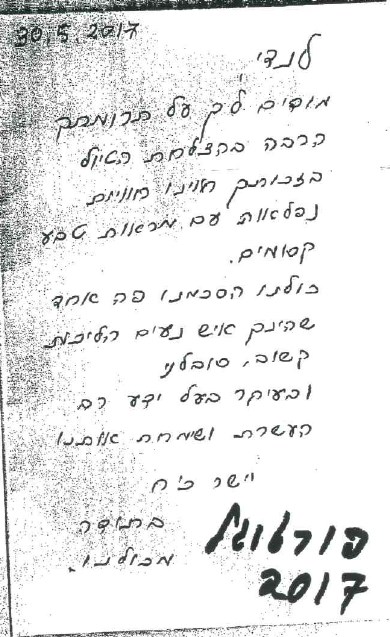 30.5.2017
לנדי
מודים לך על תרומתך
הרבה בהצלחת הטיול
בזכותך חווינו חוויות
נפלאות עם מראות טבע
קסומים.
כולנו הסכמנו פה אחד
שהינך איש נעים הליכות
קשוב, סובלני
ובעיקר בעל ידע רב
העשרת ושימחת אותנו
יישר כ"ח
בתודה
מכולנו.
פורטוגל
2017